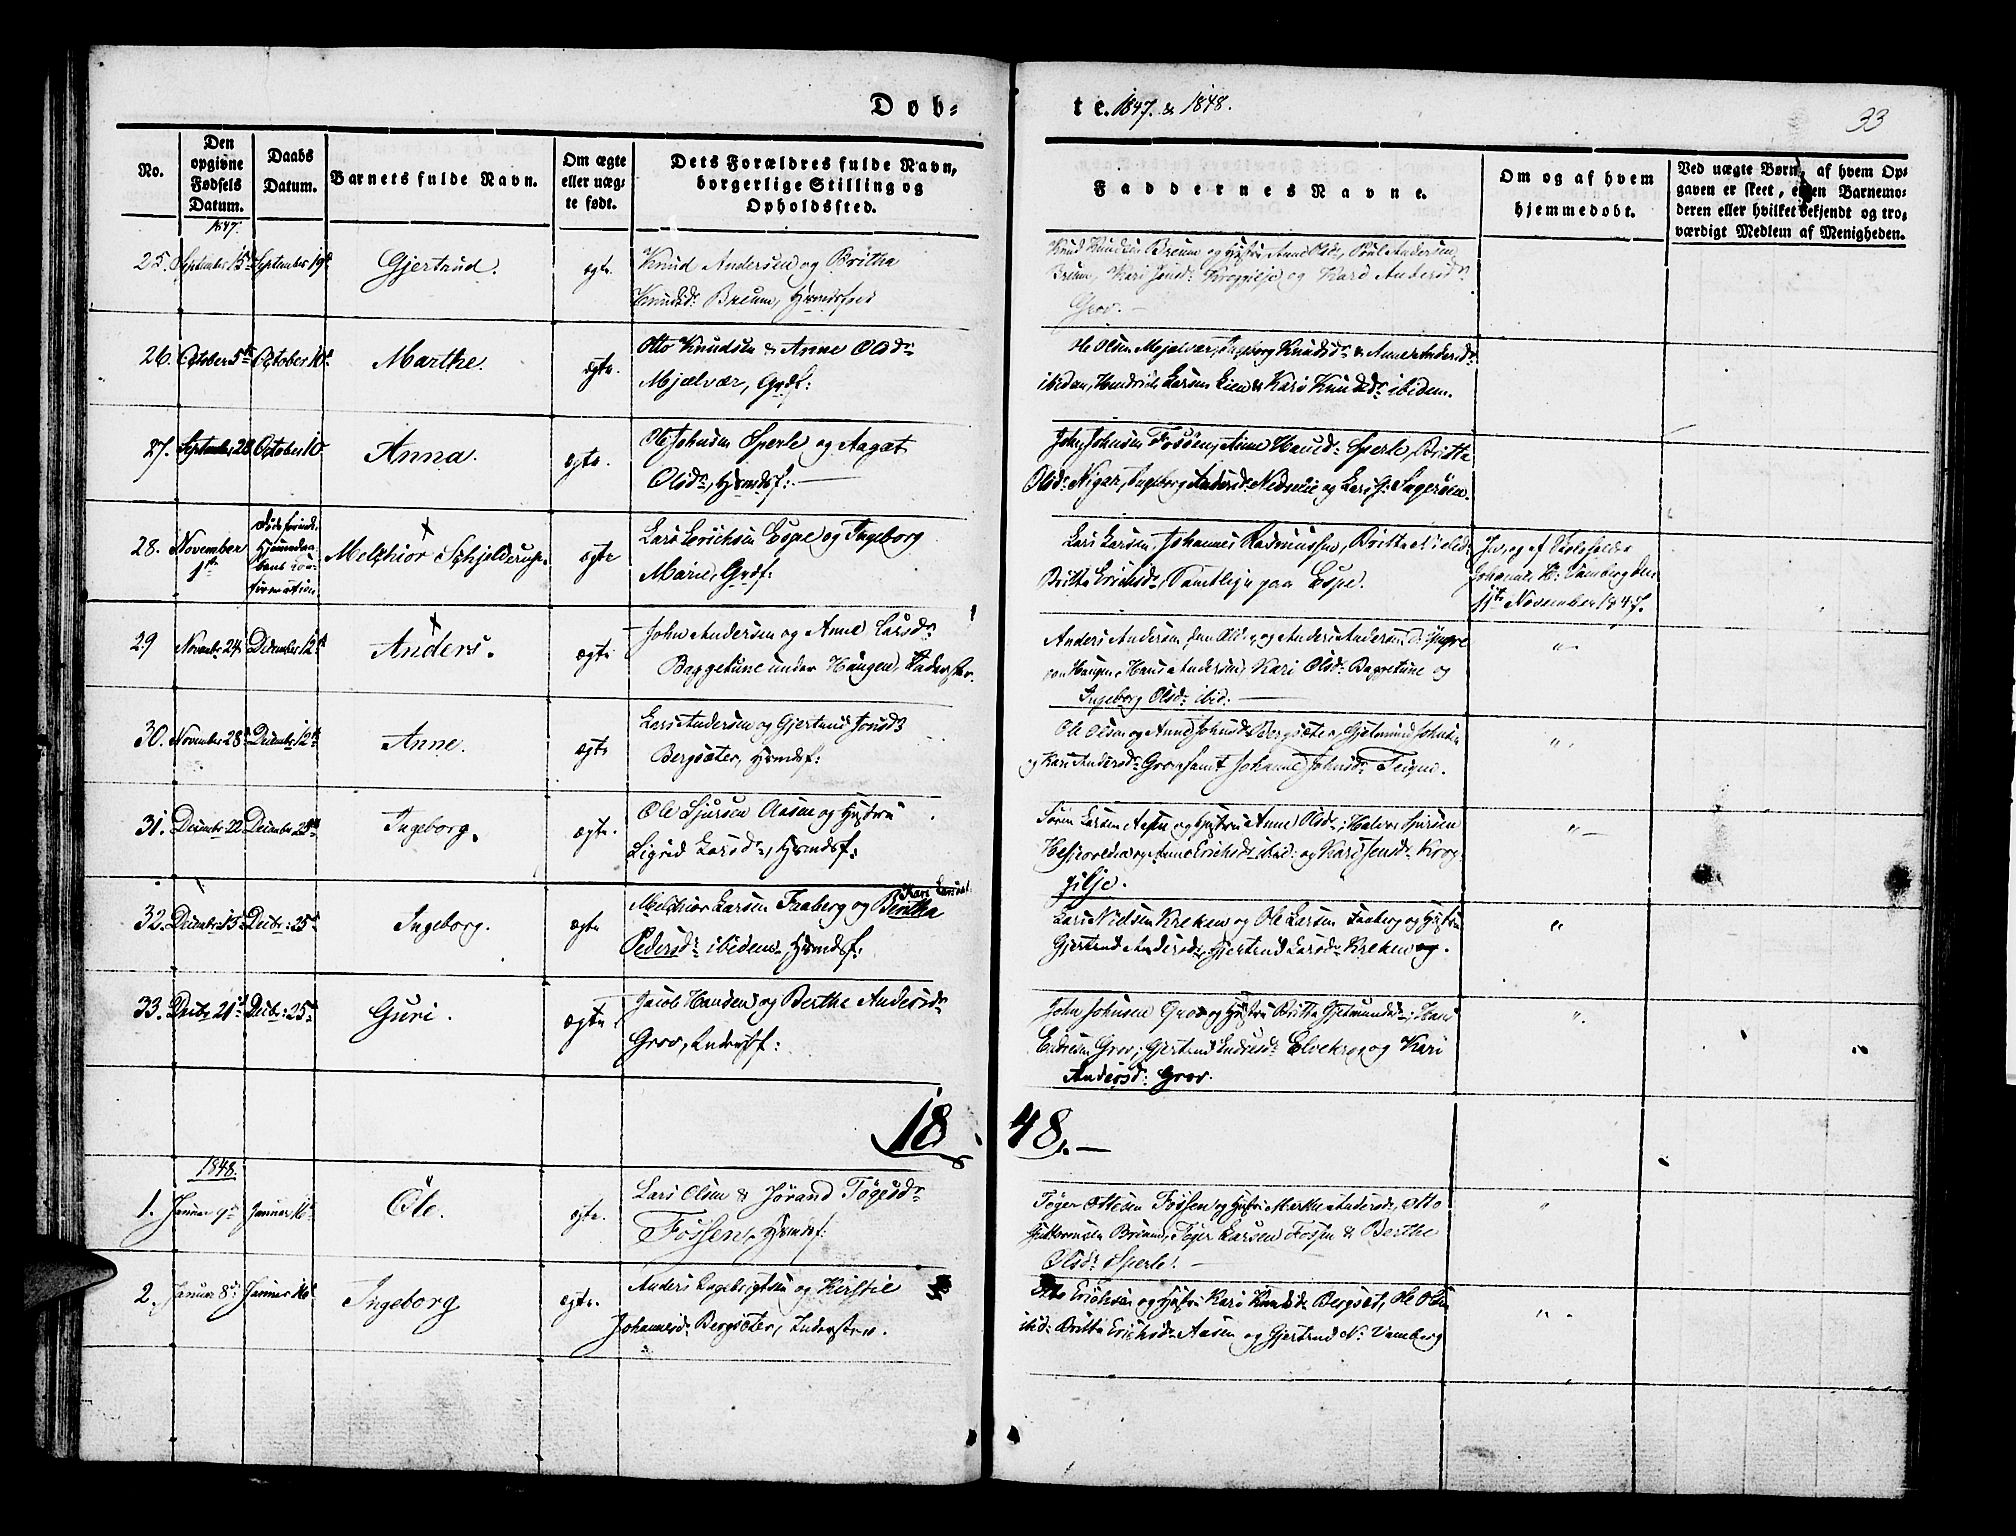 Dob-
te. 1847. & 1848.
33
No.
Den opgivne Fødsels Datum.
Daabs Datum.
Barnets fulde Navn.
Om ægte eller uæg- te født.
Dets Forældres fulde Navn, borgerlige Stilling og Opholdssted.
Faddernes Navne.
Om og af hvem hjemmedobt.
Ved uægte Børn, af hvem Op- gaven er skeet, enten Barnemo- deren eller hvilket bekjendt og tro- værdigt Medlem af Menigheden.
1847.
25. September 15 September 19 Gjertrud. ægte.
Knud Andersen og Britha
Knudsd: Breum, Hsmdsfød
Knud Knudsen Breum og Hustru Anne Olsd:, Andersen
Breum, Kari Jensd: Kroggilje og Kari Andersd:
Grov. —
26. October 5te October 10de Marthe. ægte.
Otto Knudsen & Anne Olsd:
Mjælvær, Grdf:
Ole Olsen Mjælvær, Ingeborg Knudsd: & Anne Andersd:
ibidem, Hendrich Larsen Lien & Kari Knudsd: ibidem.
27. September 28 October 10 Anna. ægte.
Ole Johnsen Sperle og Aagat
Olsd:, Hsmdsf: —
John Johnsen Fossen, Anne Hansd: Sperle, Britta
Olsd: Nigar, Ingeborg Andersd: og Lars
28. November 1te
Melchior Schjelderup. ægte
Lars Erichsen Espe og Ingeborg
Marie, Grdf:
Lars Larsen, Johannes Rasmussen, Britta Nielsd:
Britta Erichsd:, samtlige paa Espe.
Ja, og af Skoleholder
Johannes N: Vamberg den
1te November 1847.
29 Novembr 24 December 12te Anders. ægte
John Andersen og Anne Larsd:
Baggetune under Haugen,
Anders Andersen, den ældre, og Anders Andersen d: Yngre
Haugen, Hans Andersen, Kari Olsd: Baggetune og
Ingeborg Olsd: ibid: —
"
30. November 28 Decembr 12te Anne. ægte
Lars Andersen og Gjertrud Jonsd:
Bergsæter, Hsmdsf:
Ole Olsen og Anne Johnsd: Bergsæter, Gjelmund Johnsen
og Kari Andersd: Grov, samt Johanne Johnsd: Teigen.
"
31. Decembr 22 Decembr 25de Ingeborg. ægte.
Ole Sjursen Aasen og Hustru
Sigrid Larsd:, Hsmdsf:
Søren Larsen Aasen og Hustru Anne Olsd:, Halvor Sjursen
og Anne Erichsd: ibid: og Kari Jensd: Krog-
gilje.
"
32. Decembr 15 Decbr: 25de Ingeborg. ægte
Kari Larsd:
Melchior Larsen Faaberg og Beritha
Pedersd: ibidem, Hsmdsf:
Lars Nielsen Kreken og Ole Larsen Faaberg og Hustru
Gjertrud Andersd:, Gjertrud Larsd: Kreken og.
"
33. Decbr 21de Decbr: 25de Guri. ægte
Jacob Hansen og Berthe Andersd:
Grov, Inderstf:
John Johnsen Grov og Hustru Britta Gjelmundsd:, Hans
Endresen Grov, Gjertrud Endresd: Elvekrog og Kari
Andersd: Grov.
"
1848. —
1848.
1. Januar 9de Januar 16de Ole. ægte.
Lars Olsen & Jørand Tøgesd:
Fossen, Hsmdsf:
Tøger Ottesen Fossen og Hustru Marthe Andersd:, Otto
Guttormsen Breum, Tøger Larsen Fossen & Berthe
Olsd: Sperle. —
"
2. Januar 8de Januar 16de Ingeborg ægte.
Anders Engebrigtsen og Kirstie
Johannesd: Bergsæter, Inderster.
Erichsen og Hustru Kari Knudsd: Bergset, Ole Olsen
ibid: Britta Erichsd: Aasen og Gjertrud N: Vamberg
"